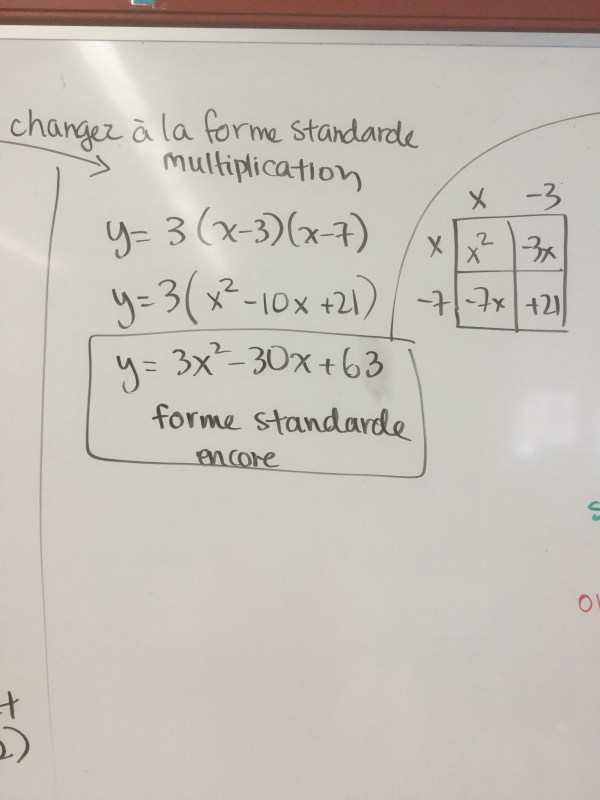 changez à la forme standarde
multiplication
y = 3(x-3)(x-7)
y = 3(x² -10x +21)
y = 3x² -30x + 63
forme standarde
encore
x -3
x x² -3x
-7 -7x +21